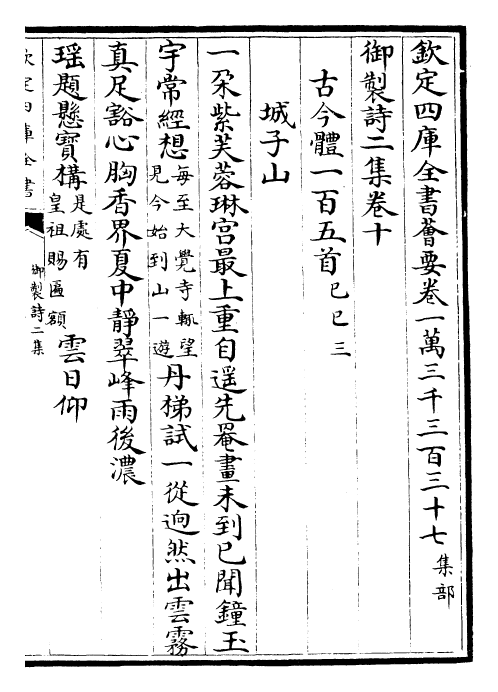 欽定四庫全書薈要卷一萬三千三百三十七集部
御製詩二集卷十
古今體一百五首己巳三
城子山
一朶紫芙蓉琳宫最上重自遥先罨畫未到已聞鐘玉
宇常經想每至大覺寺輒望見今始到山一遊丹梯試一從逈然出雲霧
真足豁心胸香界夏中靜翠峰雨後濃
瑶題懸寶構是處有皇祖賜匾額雲日仰
欽定四庫全書
御製詩二集